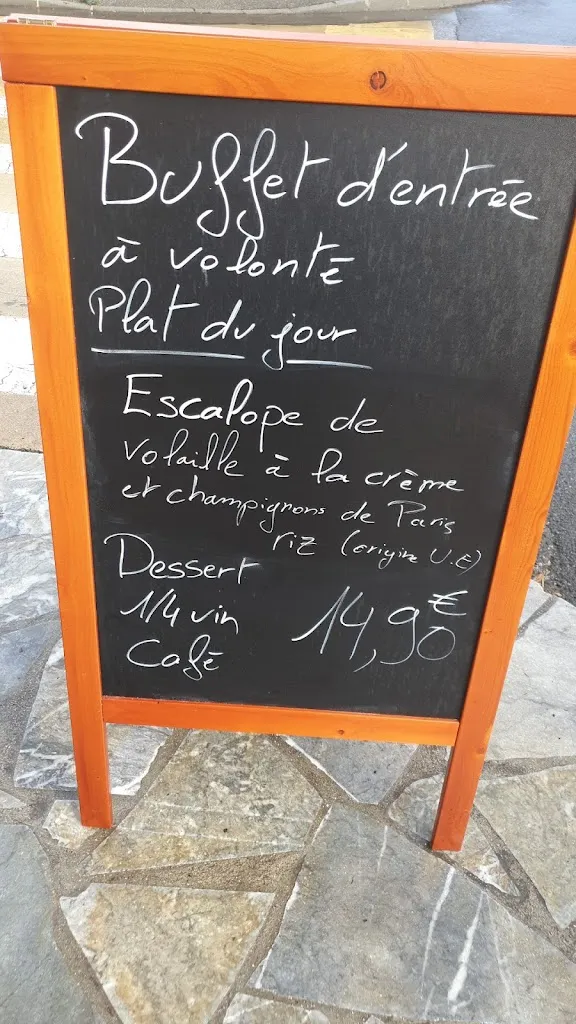 Buffet d'entrée
à volonté
Plat du jour
Escalope de
volaille à la crème
et champignons de Paris
riz (origine U.E)
Dessert
1/4 vin
14,90€
Café